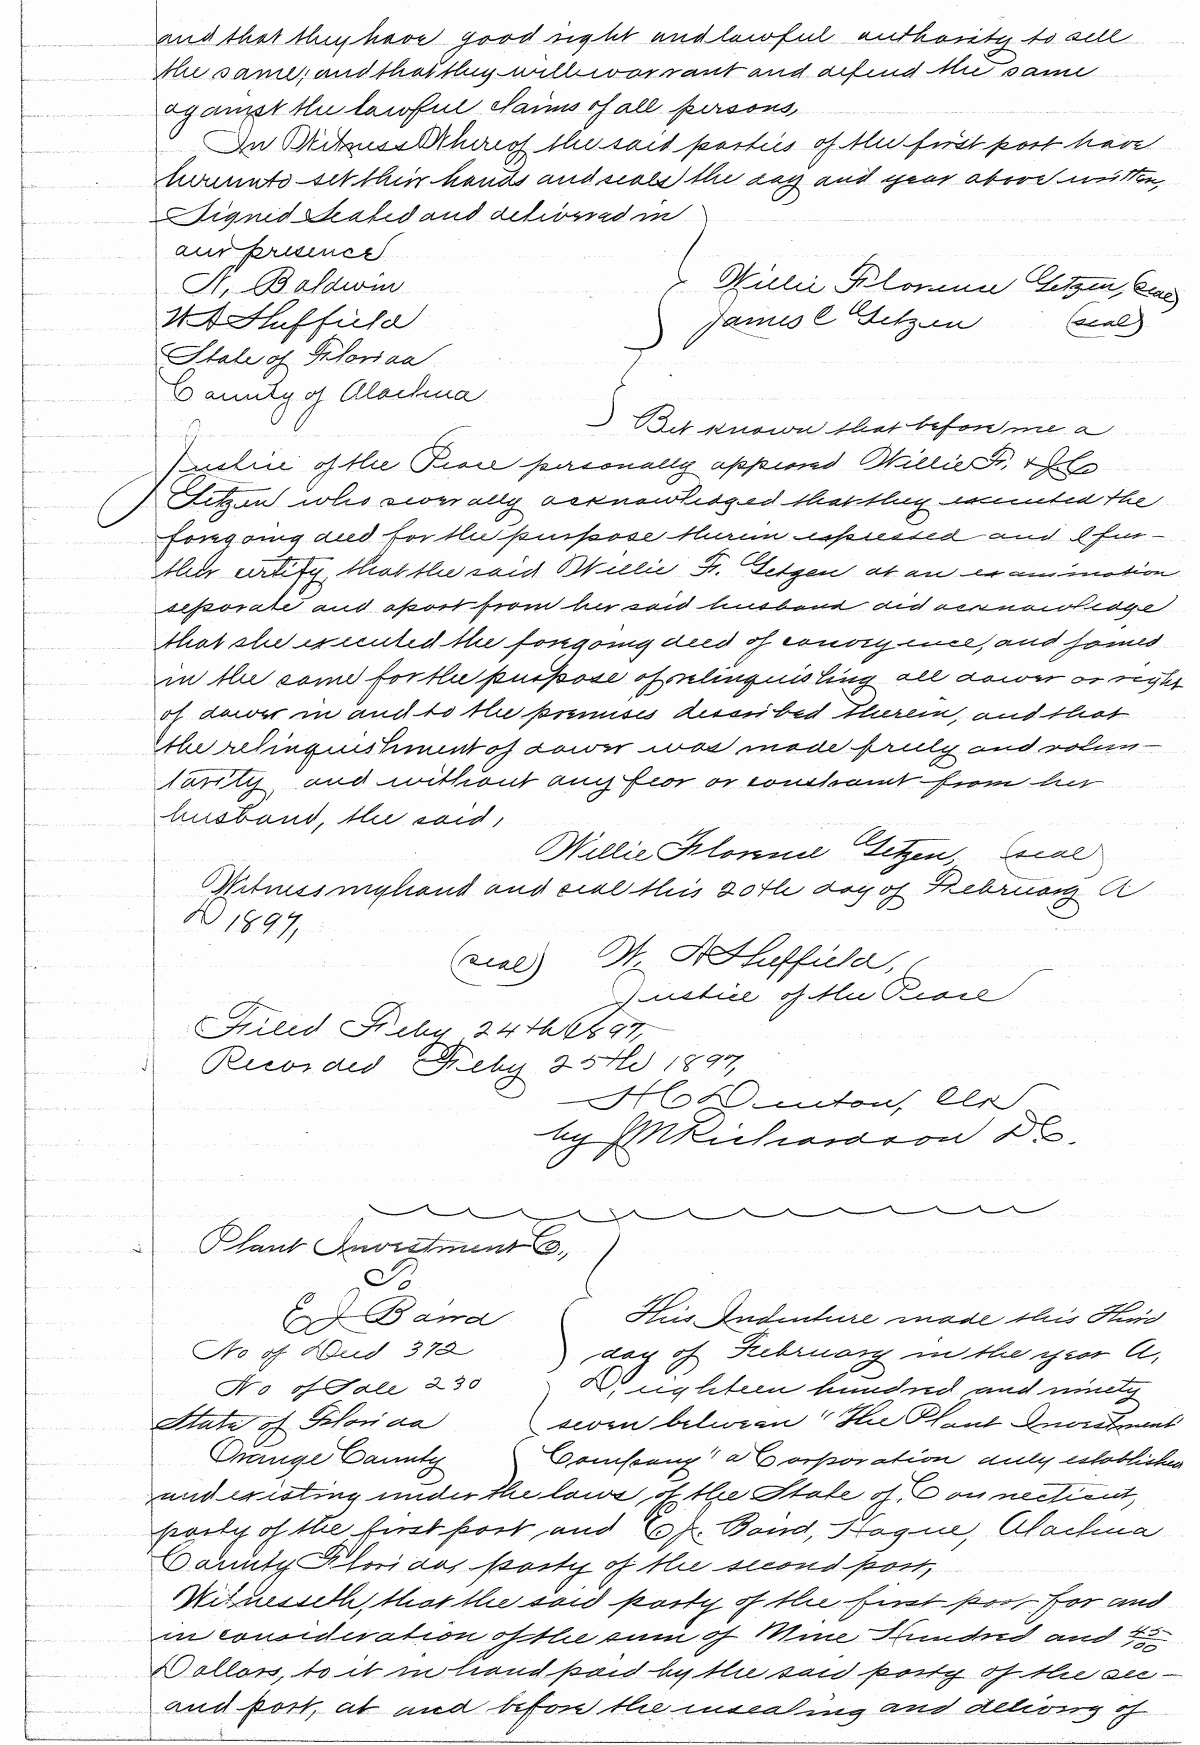 and that they have good right and lawful authority to sell
the same; and that they will warrant and defend the same
against the lawful claims of all persons,
In Witness Whereof the said parties of the first part have
hereunto set their hands and seals the day and year above written,
Signed Sealed and delivered in
our presence
N. Baldwin
Willie Florence Getzen, (seal)
W A Sheffield
James C Getzen (seal)
State of Florida
County of Alachua
Be it known that before me a
Justice of the Peace personally appeared Willie F. & J C
Getzen who severally acknowledged that they executed the
foregoing deed for the purpose therein expressed and I fur-
ther certify, that the said Willie F. Getzen at an examination
separate and apart from her said husband did acknowledge
that she executed the foregoing deed of conveyence, and joined
in the same for the purpose of relinquishing all dower or right
of dower in and to the premises described therein, and that
the relinquishment of dower was made freely and volun-
tarily, and without any fear or constraint from her
husband, the said,
Willie Florence Getzen, (seal)
Witness my hand and seal this 20th day of February A
D 1897,
(seal) W. A Sheffield,
Justice of the Peace
Filed Feby 24th 1897,
Recorded Feby 25th 1897,
H C Denton, Clk
by J M Richardson D C.
Plant Investment Co.,
To
E J Baird
This Indenture made this Third
No of Deed 372
day of February in the year A,
No of Sale 230
D, eighteen hundred and ninety
State of Florida
seven between "The Plant Investment
Orange County
Company" a Corporation duly established
and existing under the laws of the State of Connecticut,
party of the first part and E J. Baird, Hague, Alachua
County Florida, party of the second part,
Witnesseth, that the said party of the first part for and
in consideration of the sum of Nine Hundred and 45/00
Dollars, to it in hand paid by the said party of the sec-
ond part, at and before the ensealing and delivry of